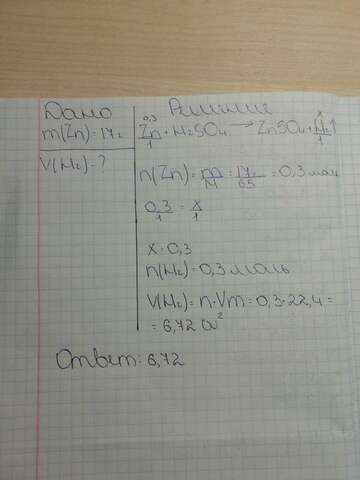 Дано
m(Zn)=17г
V(H₂)-?
Решение
0,3 x
Zn + H₂SO₄ → ZnSO₄ + H₂↑
1 1
n(Zn) = m/M = 17/65 = 0,3 моль
0,3/1 = x/1
x=0,3
n(H₂)=0,3 моль
V(H₂)=n·Vm=0,3·22,4=
= 6,72
Ответ: 6,72